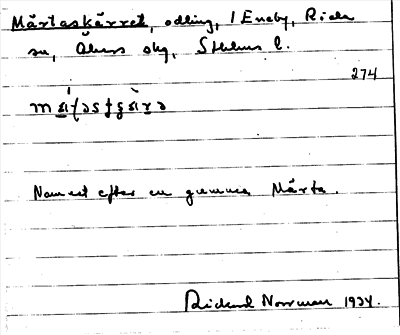 Märtaskärret, odling, / Eneby, Riala
sn, Åkers skg, Sthlms l.
274
Namnet efter en gumma Märta.
Rickard Norrman 1934.